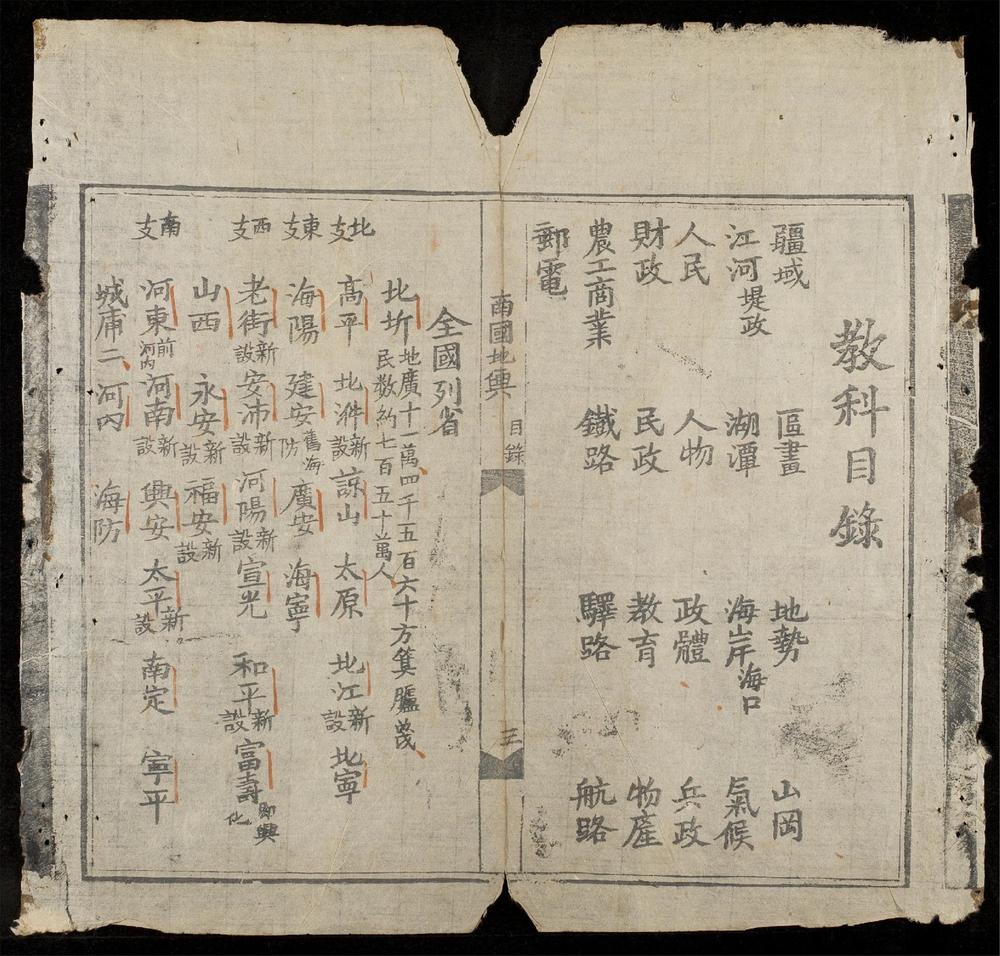 教科目錄
疆域 區畫 地勢 山岡
江河堤政 湖潭 海岸海口 氣候
人民 人物 政體 兵政
財政 民政 教育 物產
農工商業 鐵路 驛路 航路
郵電
南國地輿 目錄 三
全國列省
北圻 地廣十一萬四千五百六十方箕臚羙
民數約七百五十萬人
北支 高平 北𣴓新設 諒山 太原 北江新設 北寧
東支 海陽 建安舊海防 廣安 海寧
西支 老街新設 安沛新設 河陽新設 宣光 和平新設 富壽即興化
山西 永安新設 福安新設
南支 河東前河內 河南新設 興安 太平新設 南定 寧平
城庯二 河內 海防